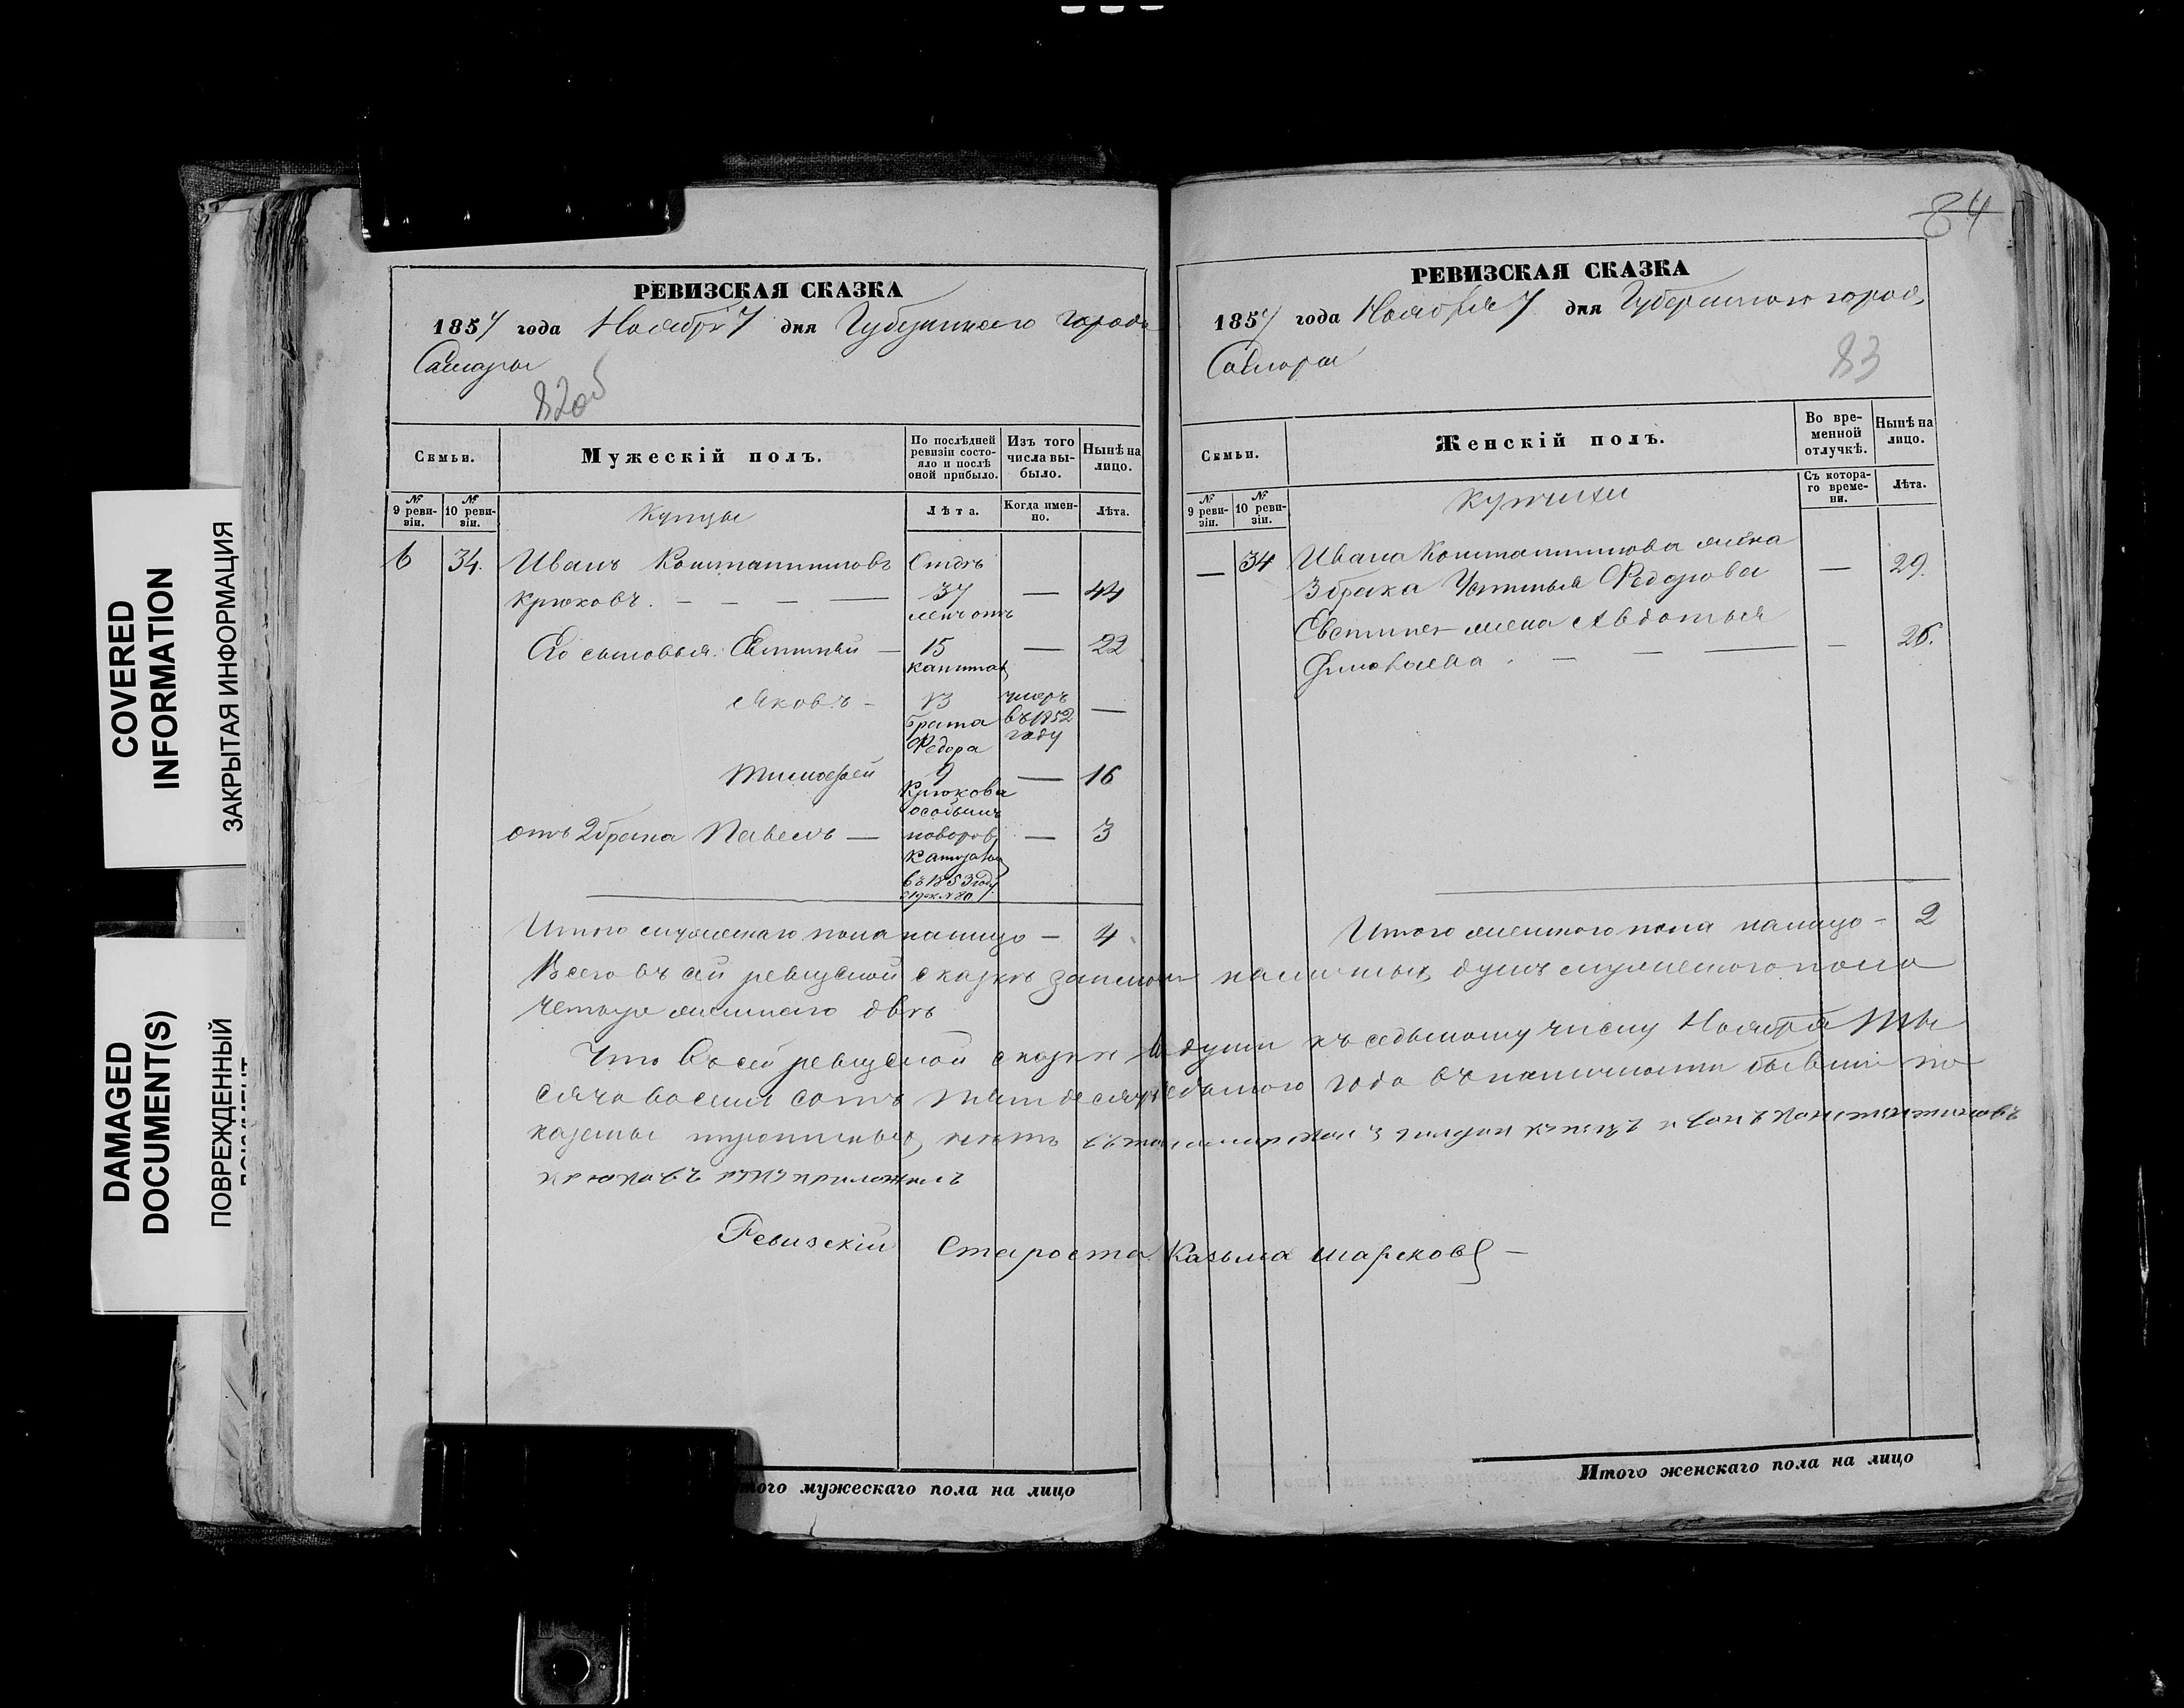 COVERED
INFORMATION
ЗАКРЫТАЯ ИНФОРМАЦИЯ
DAMAGED
DOCUMENT(S)
ПОВРЕЖДЕННЫЙ
РЕВИЗСКАЯ СКАЗКА
1857 года Ноября 7 дня Губернского города
Самары
82об
Семьи.
Мужескій полъ.
По послѣдней ревизіи состояло и послѣ оной прибыло.
Изъ того числа выбыло.
Нынѣ на лицо.
№ 9 ревизіи.
№ 10 ревизіи.
Купцы
Лѣта.
Когда именно.
Лѣта.
6 34. Иванъ Константиновъ Отдѣ
Крюковъ. — — — — 37 — 44
ленъ отъ
Его сыновья: Евтихій — 15 — 22
капитал
Яковъ — 13 умеръ
брата въ 1852 —
Федора году
Тимофей 9 — 16
Крюкова
особымъ
отъ 2 брака Павелъ — — 3
въ 1853 году
Итого мужескаго пола налицо — 4
Всего въ сей ревизской сказкѣ наличныхъ душъ мужескаго пола
четыре женскаго двѣ
Что въ сей ревизской сказкѣ души къ седьмому числу Ноября Ты
сяча восемь сотъ пятьдесятъ седьмого года въ наличности бывшіе по
казаны пропускныхъ нѣтъ въ томъ 3 гилдіи купецъ иванъ константиновъ
крюковъ руку приложилъ
Ревизскій Староста Казьма
того мужескаго пола на лицо
84
РЕВИЗСКАЯ СКАЗКА
1857 года Ноября 7 дня Губернского города
Самары
83
Семьи.
Женскій полъ.
Во временной отлучкѣ.
Нынѣ на лицо.
№ 9 ревизіи.
№ 10 ревизіи.
Купчихи
Съ котораго времени.
Лѣта.
— 34 Ивана Константинова жена
3 брака Устинья Федорова — 29.
Евтихія жена Авдотья
— — — — 26.
Итого женского пола налицо — 2
Итого женскаго пола на лицо